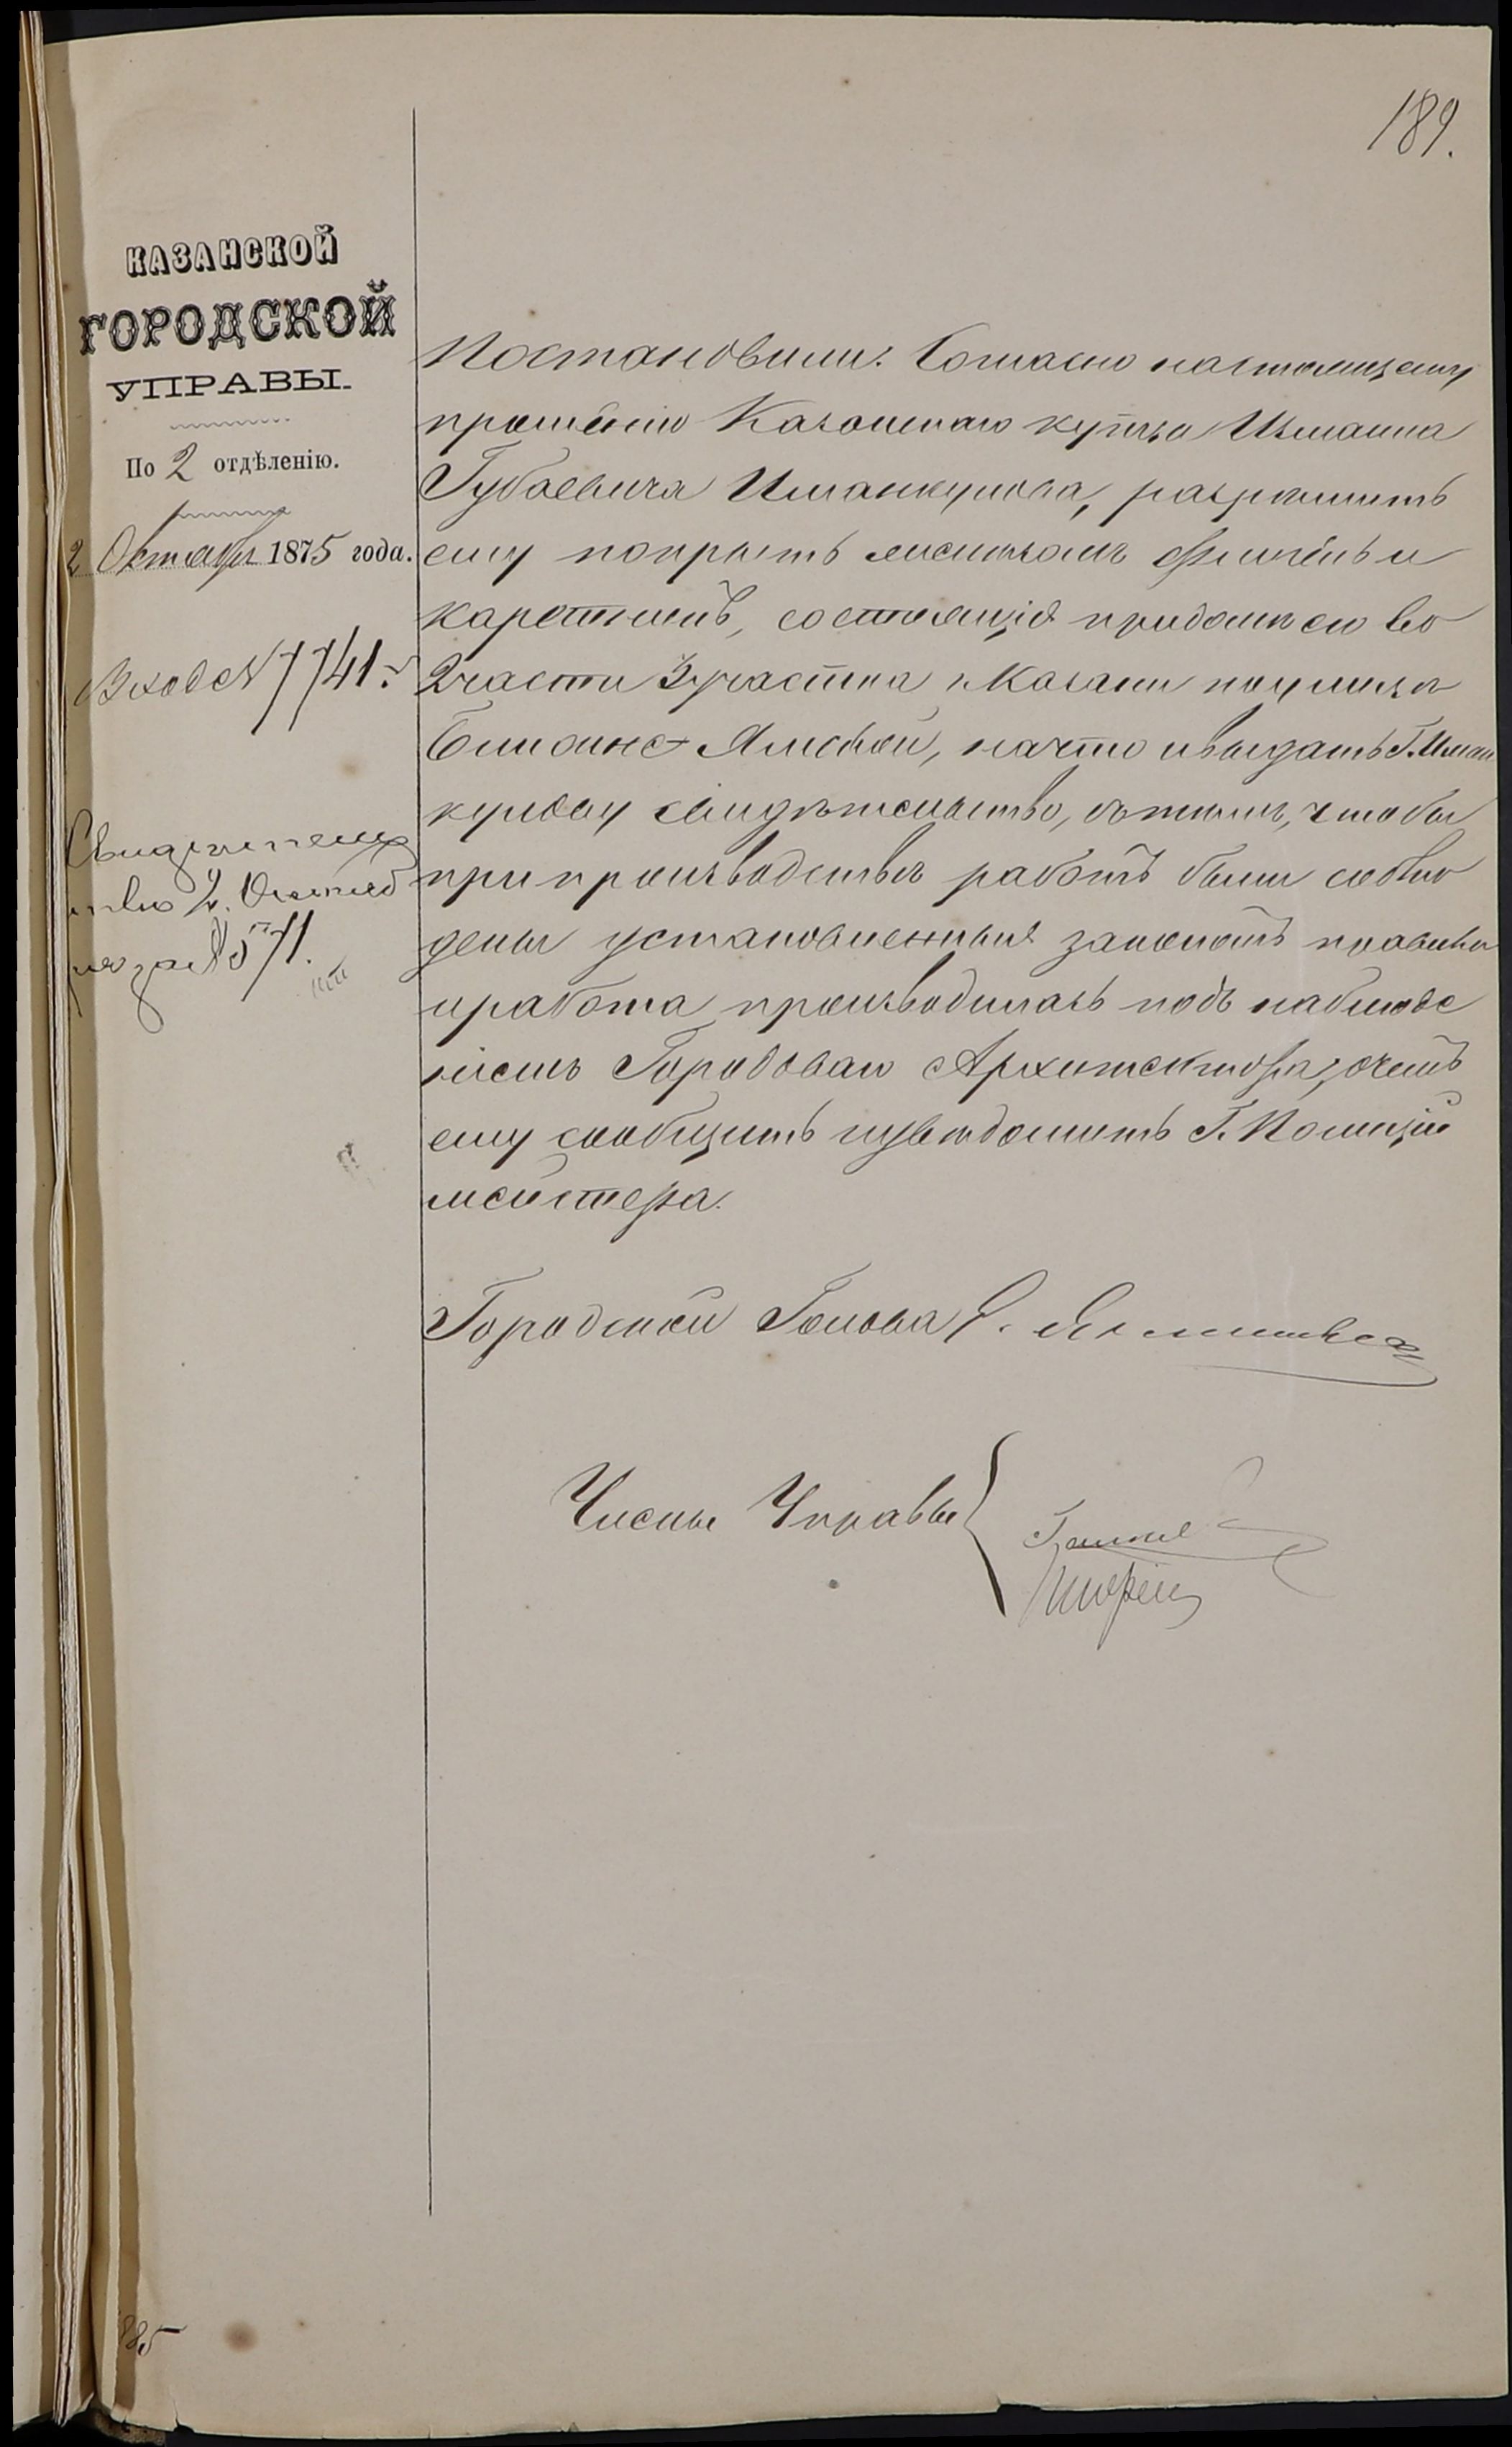 189.
КАЗАНСКОЙ
ГОРОДСКОЙ
УПРАВЫ.
По 2 отдѣленію.
2 Октября 1875 года.
Входе № 7741.
Свидѣтельс
тво 2. Октяб
ря за № 571.
Постановили: Согласно настоящему
прошенію Казанскаго купца Измаила
Губаевича Иманкулова, разрѣшить
ему покрыть желѣзомъ флигель и
каретникъ, состоящія при домѣ его во
2 части 3 участка г. Казани по улицѣ
Ближне-Ямской, на что и выдать Г. Иман
кулову свидѣтельство, съ тѣмъ, чтобы
при производствѣ работъ были соблю
дены установленныя закономъ правила
и работа производилась подъ наблюде
ніемъ Городоваго Архитектора, о чемъ
ему сообщить и увѣдомить Г. Полиціи
мейстера.
Городской Голова Э. Янишевскій
Члены Управы
885